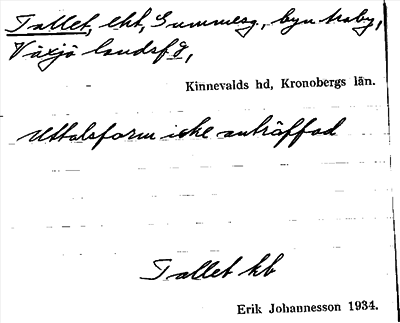 Tallet, lht, Gummesg., byn Araby,
Växjö landsf d,
Kinnevalds hd, Kronobergs län.
Uttalsform icke anträffad
Tallet kb
Erik Johannesson 1934.